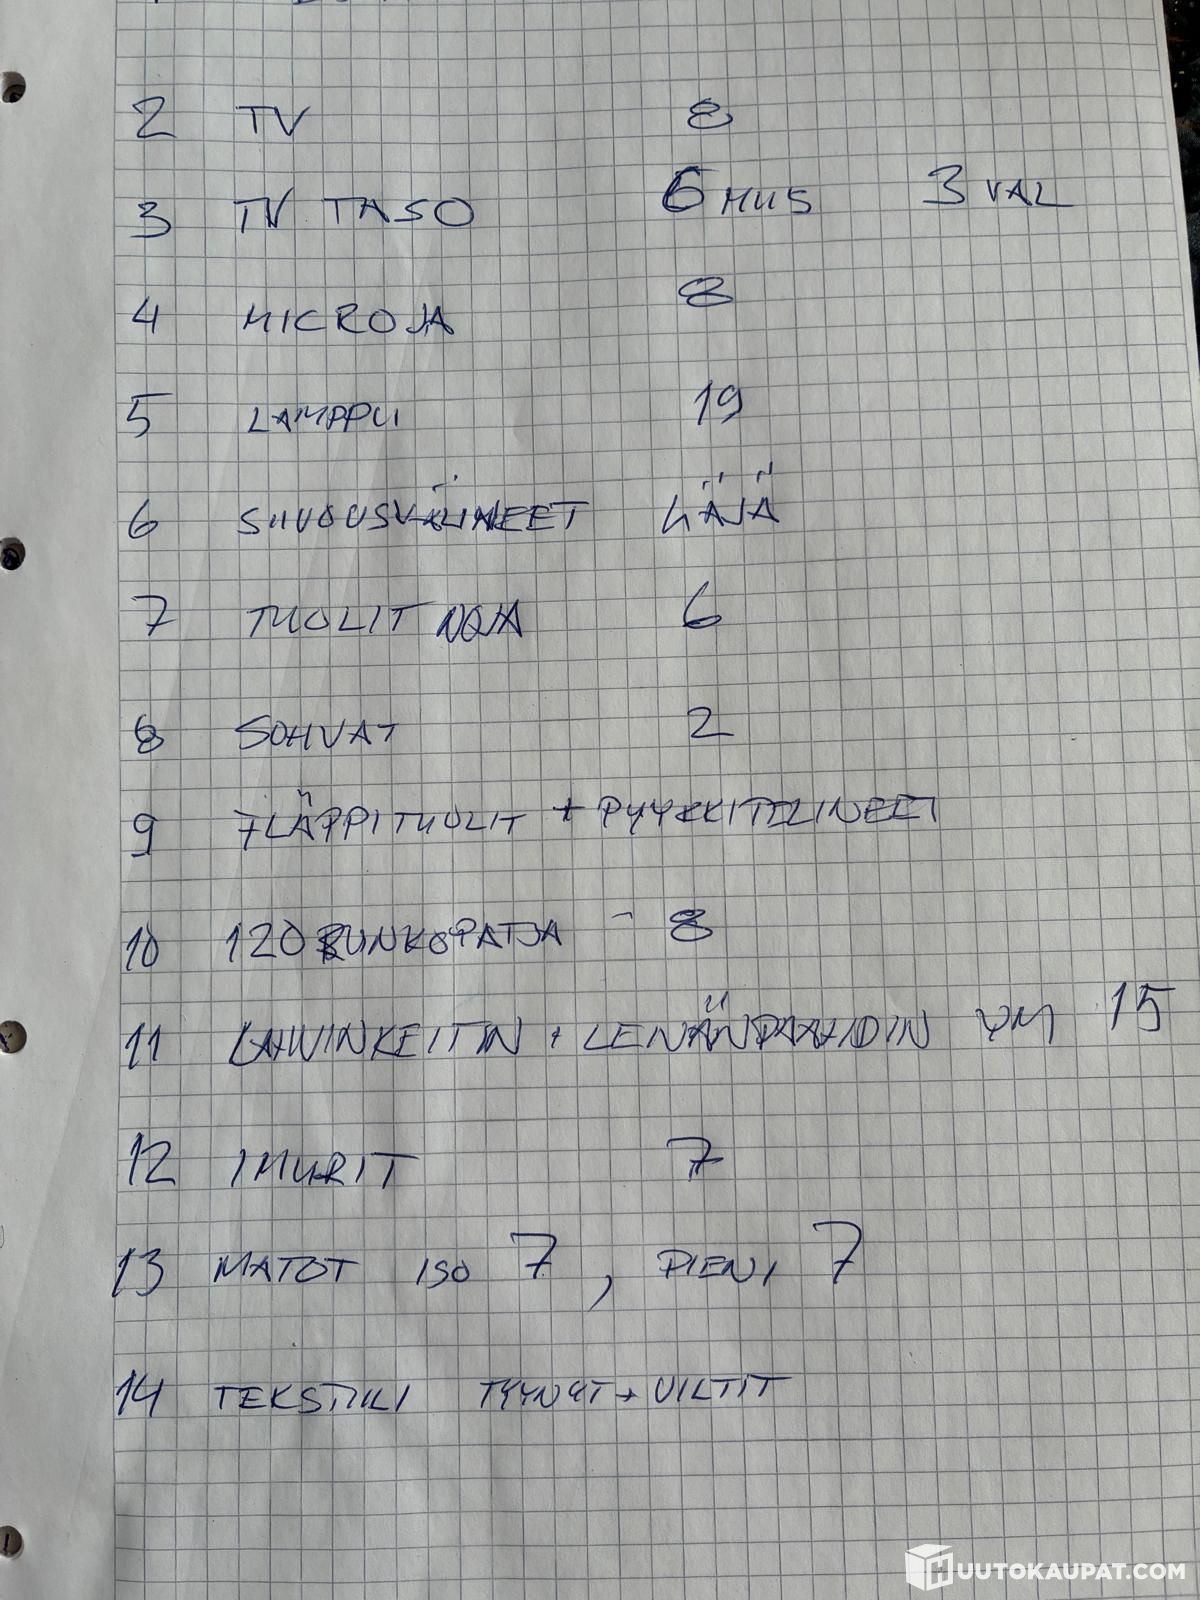 2 TV 8
3 TV TASO 6 MUS 3 VAL
4 MICROJA 8
5 LAMPPU 19
6 SIIVOUSVÄLINEET LÄJÄ
7 TUOLIT NOJA 6
8 SOHVAT 2
9 FLÄPPITUOLIT + PYYKKITELINEET
10 120 RUNKOPATJA - 8
11 KAHVINKEITIN + LEIVÄNPAAHDIN YM 15
12 IMURIT 7
13 MATOT ISO 7, PIENI 7
14 TEKSTIILI TYYNYT + VILTIT
HUUTOKAUPAT.COM